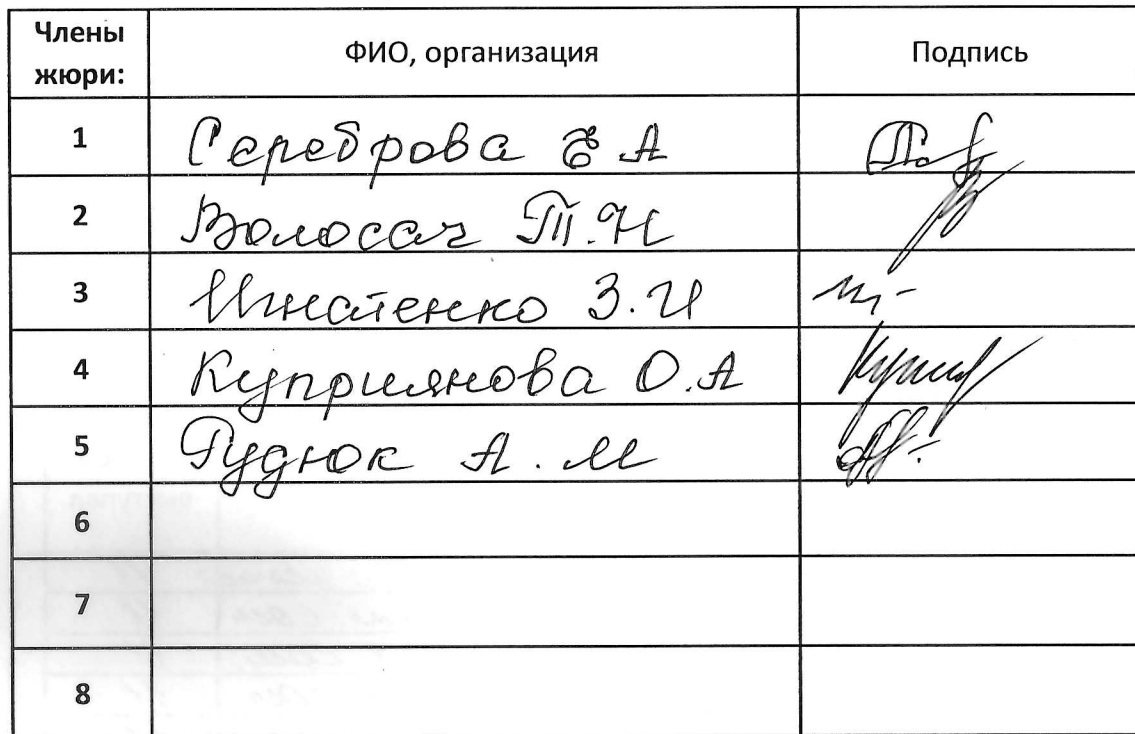 Члены жюри: ФИО, организация Подпись
1 Сереброва Е А
2 Волосач Т.Н
3 Игнатенко З.И
4 Куприянова О.А
5 Рудюк А.М
6
7
8